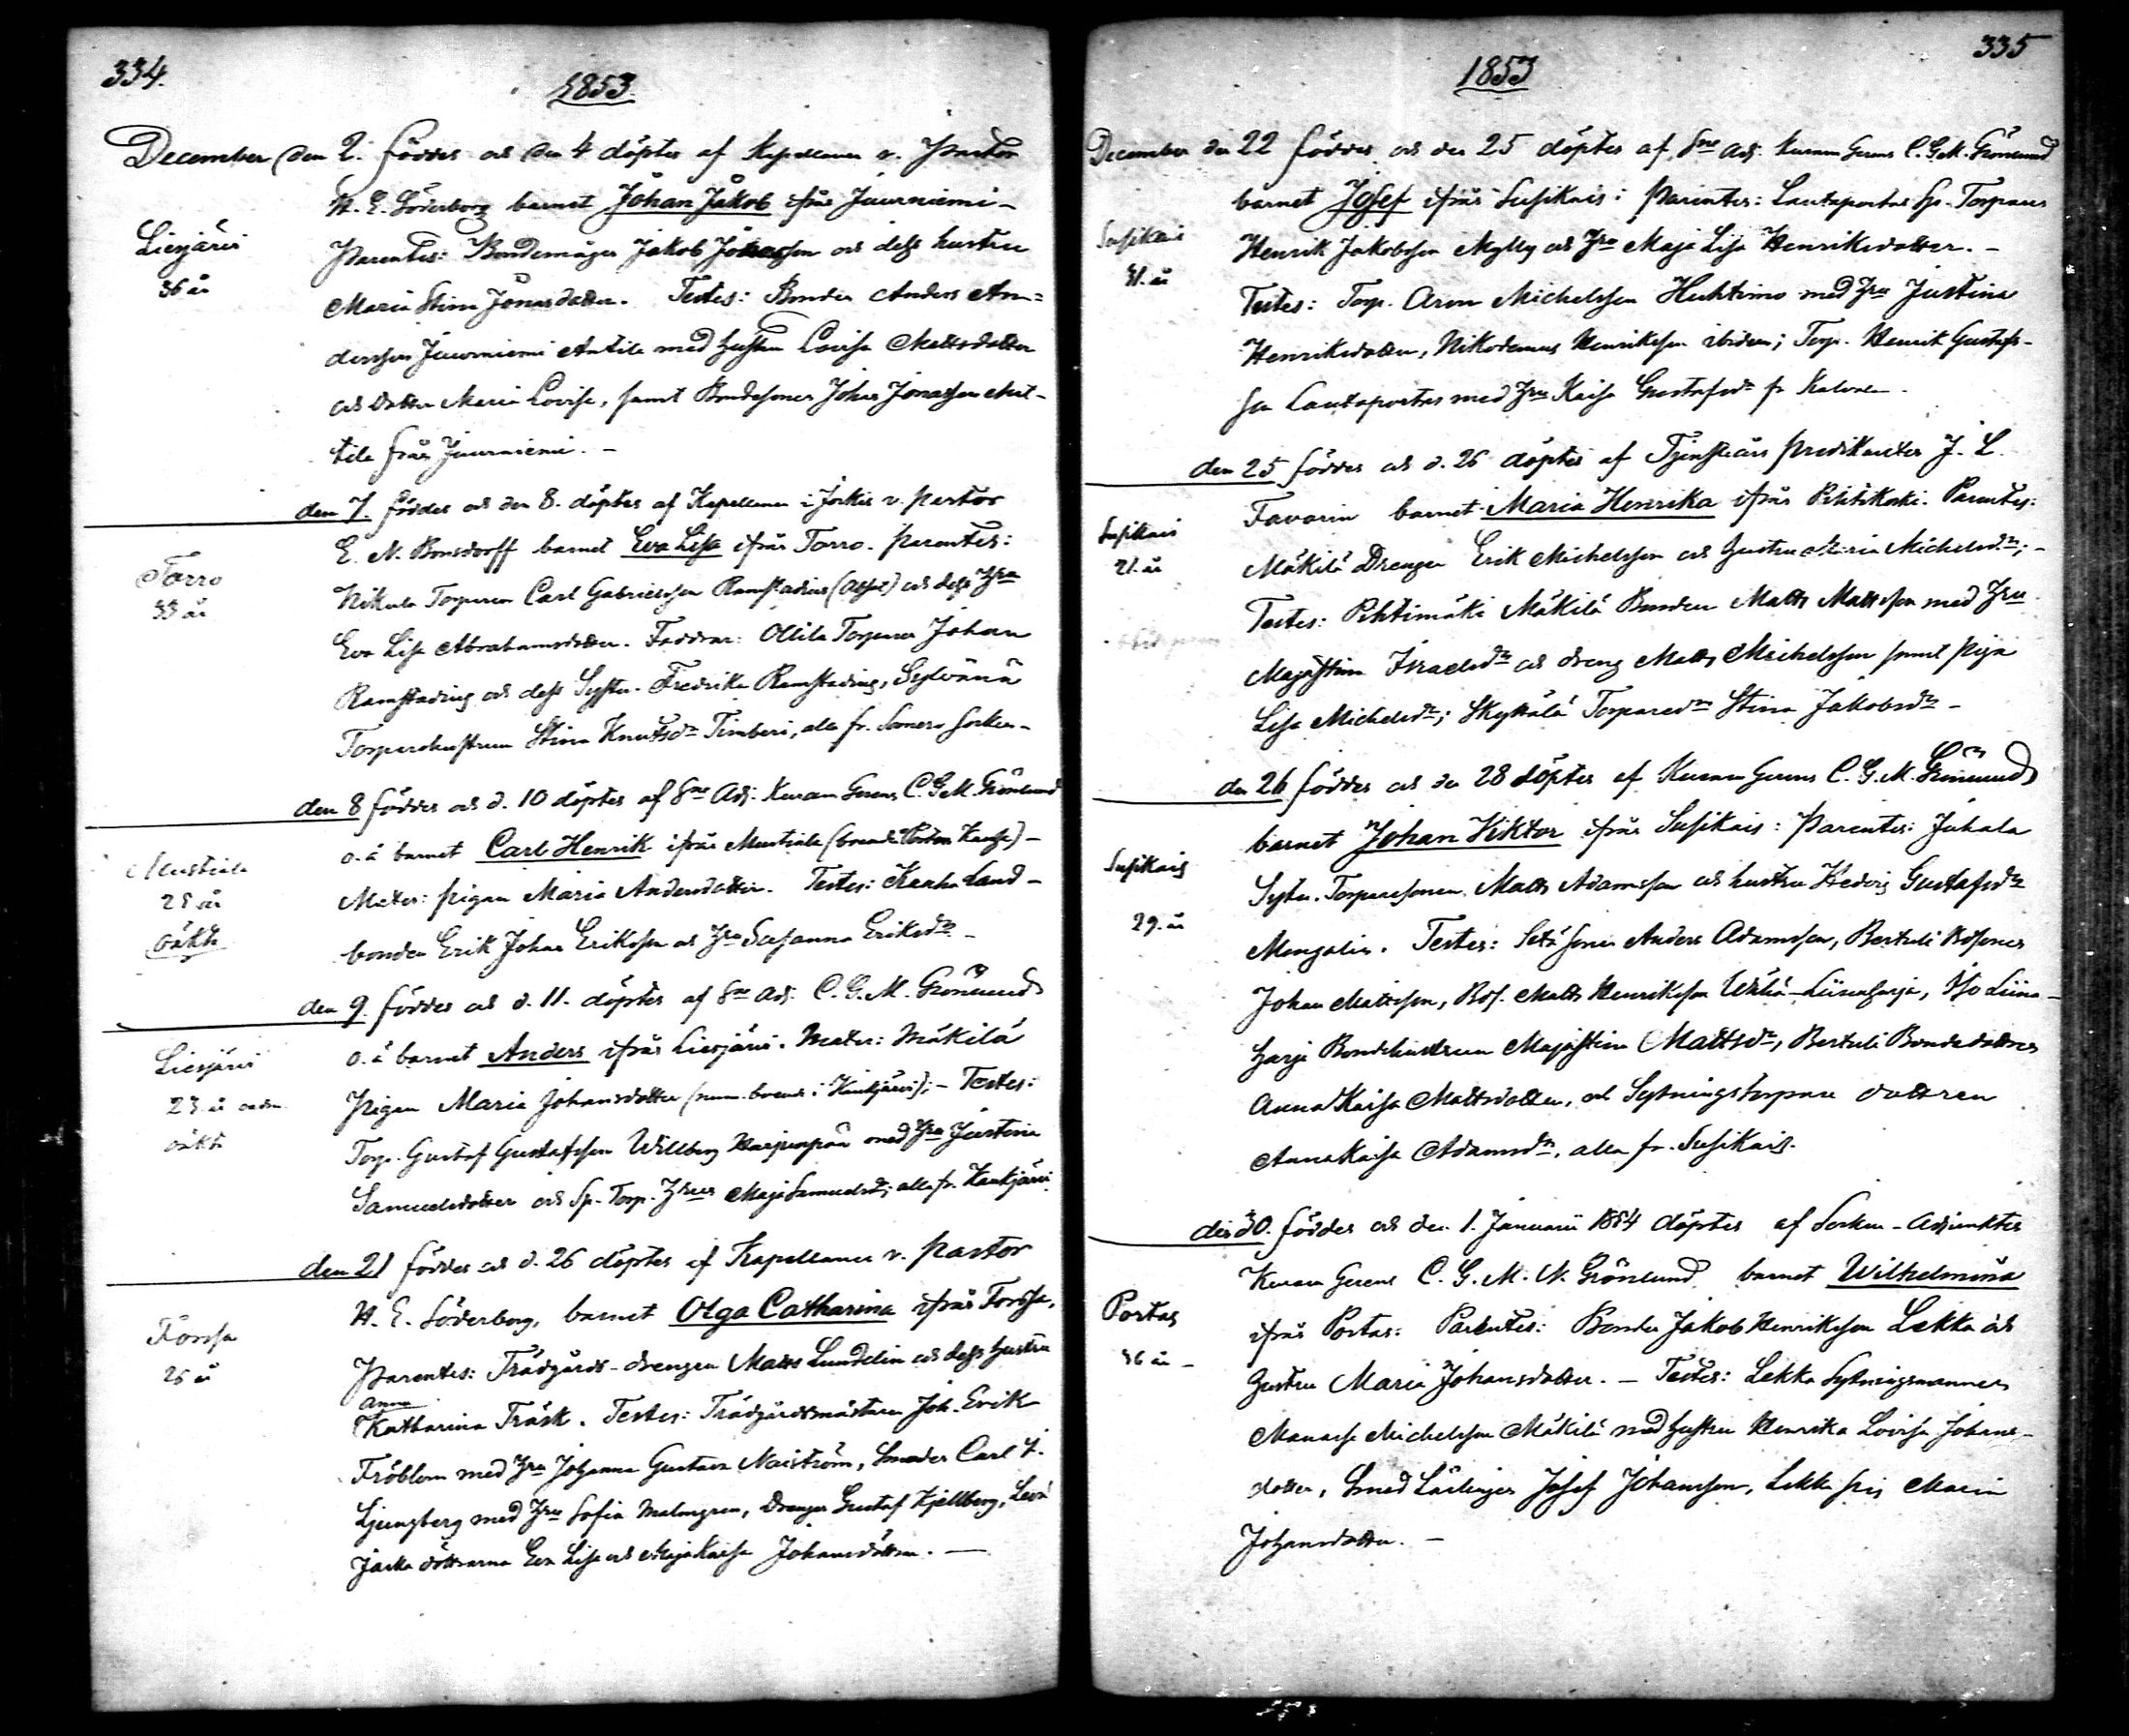 334.
1853.
December den 2. föddes och den 4 döptes af Kapellanen v. Pastor
N. E. Söderborg barnet Johan Jakob ifrån Juurniemi-
Liesjärvi
Parentes: Bondemågen Jakob Johansson och dess hustru
36 år
Maria Stina Jonasdotter. Testes: Bonden Anders An=
dersson Juurniemi Antila med hustru Lovisa Mattsdotter
och dotter Maria Lovisa, samt Bondesonen Johan Jonasson Ant-
tila från Juurniemi. -
den 7. föddes och den 8. döptes af Kapellanen i Jockis v. pastor
E. N. Bonsdorff barnet Eva Lisa ifrån Torro. Parentes:
Torro
33 år
Nikula Torparen Carl Gabrielsson Ramstadius och dess Hru
Eva Lisa Abrahamsdotter. Faddrar: Ollila Torparen Johan
Ramstadius och dess Syster Fredrika Ramstadius, Sylvänä
Torparehustrun Stina Knutsdr Timberi, alla fr. Somero Socken-
den 8 föddes och d. 10 döptes af Sne Adj. Kuram Gerens C. G. M. Grönlund
o.ä barnet Carl Henrik ifrån Mustiala -
Mustiala
28 år
oäkta
Mater: pigan Maria Andersdotter. Testes: Kanha Land-
bonden Erik Johan Eriksson och Hru Susanna Eriksdr. -
den 9. föddes och d. 11. döptes af Sne Adj. C. G. M. Grönlund
o.ä barnet Anders ifrån Liesjärvi. Mater: Mäkilä
Liesjärvi
23 år
oäkta
Pigan Maria Johansdotter (num. boende i Kaukjärvi); - Testes:
Torp. Gustaf Gustafsson Willberg Harjunpää med Hru Justina
Samuelsdotter och Sp. Torp. Hrun Maja Samuelsdr; alla fr. Kaukjärvi.
den 21 föddes och d. 26 döptes af Kapellanen v. pastor
N. E. Söderborg, barnet Olga Catharina ifrån Forssa,
Forssa
26 år
Parentes: Trädgårds-drengen Matts Lundelin och dess hustru
Anna
Katharina Träsk. Testes: Trädgårdsmästaren Joh. Erik
Fröblom med Hru Johanna Gustava Naiström, Smeden Carl F.
Ljungberg med Hru Sofia Malmgren, Drengen Gustaf Kjellberg, Levä
Jacka döttrarna Eva Lisa och Maja Kaisa Johansdöttrar. -
335
1853
December den 22 föddes och den 25 döptes af Sne Adj. Kuram Gerens C. G. M. Grönlund
barnet Josef ifrån Susikais: Parentes: Lautaportas Sp. Torparen
Susikais
31. år
Henrik Jakobsson Mylly och Hru Maja Lisa Henriksdotter. -
Testes: Torp. Aron Michelsson Huhtimo med Hru Justina
Henriksdotter, Nikodemus Henriksson ibidem; Torp. Henrik Gustafs-
son Lautaportas med Hru Kaisa Gustafsdr fr Kalvola.
den 25 föddes och d. 26 döptes af Tjenstårs predikanten J. L.
Favorin barnet Maria Henrika ifrån Pihtikoski. Parentes:
Susikais
21. år
Mäkilä Drengen Erik Michelsson och hustru Maria Michelsdr; -
Testes: Pihtimäki Mäkilä Bonden Matts Mattsson med Hru
Majastina Israelsdr och dreng Matts Michelsson samt piga
Lisa Michelsdr; Skyttälä Torparedr Stina Jakobsdr -
den 26 föddes och den 28 döptes af Kuram Gerens C. G. M. Grönlund
barnet Johan Viktor ifrån Susikais: Parentes: Juhala
Susikais
29. år
Sytn. Torparesonen Matts Adamsson och hustru Hedvig Gustafsdr
Mongolin. Testes: Setä sonen Anders Adamsson, Bertuli Bdsonen
Johan Mattsson, Bds. Matts Henriksson Wähä-Liisanharja, Iso Liisa-
harja Bondehustrun Majastina Mattsdr, Bertuli Bondedottren
Anna Kaisa Mattsdotter, och Sytningstorpare dottren
Anna Kaisa Adamsdr, alla fr. Susikais.
den 30. föddes och den 1. Januarii 1854 döptes af Socken-Adjunkten
Kuram Gerens C. G. M. N. Grönlund barnet Wilhelmina
Portas
36 år -
ifrån Portas: Parentes: Bonden Jakob Henriksson Lekka och
hustru Maria Johansdotter. - Testes: Lekka Sytningsmannen
Manasse Michelsson Mäkilä med hustru Henrika Lovisa Johans-
dotter, Smed Lärlingen Josef Johansson, Lekka pig Maria
Johansdotter. -